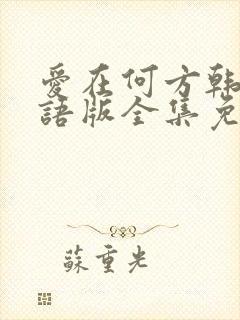 愛在何方韩
語版全集免
蘇重光